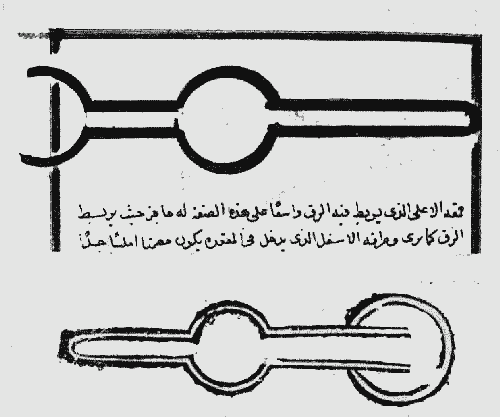 مقعد الاعلى الذى يربط فيه الزق واسعًا على هذه الصفة له حافز حيث يربط
الزق كما ترى وطرفه الاسفل الذى يدخل فى المقعده يكون مصمتا املسًا جدًا